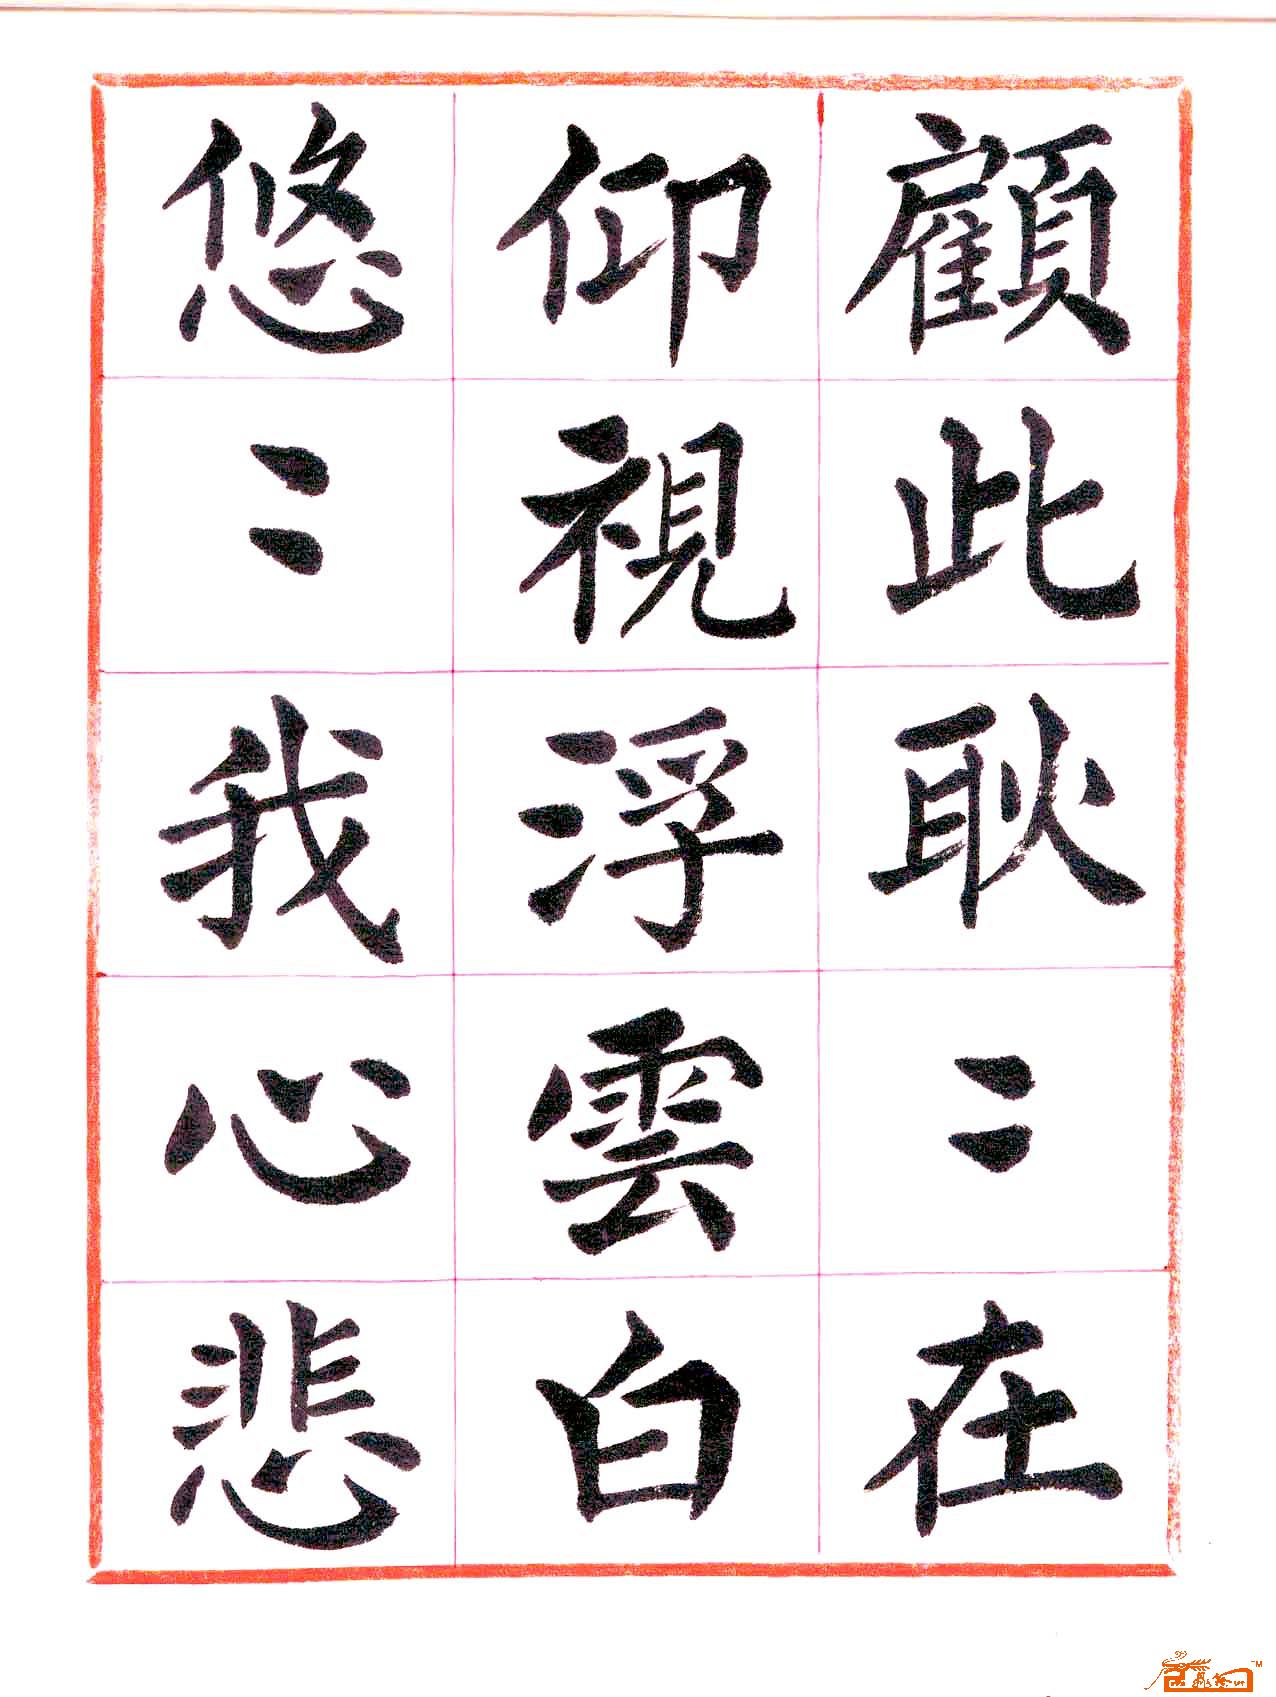 顧此耿〻在
仰視浮雲白
悠〻我心悲